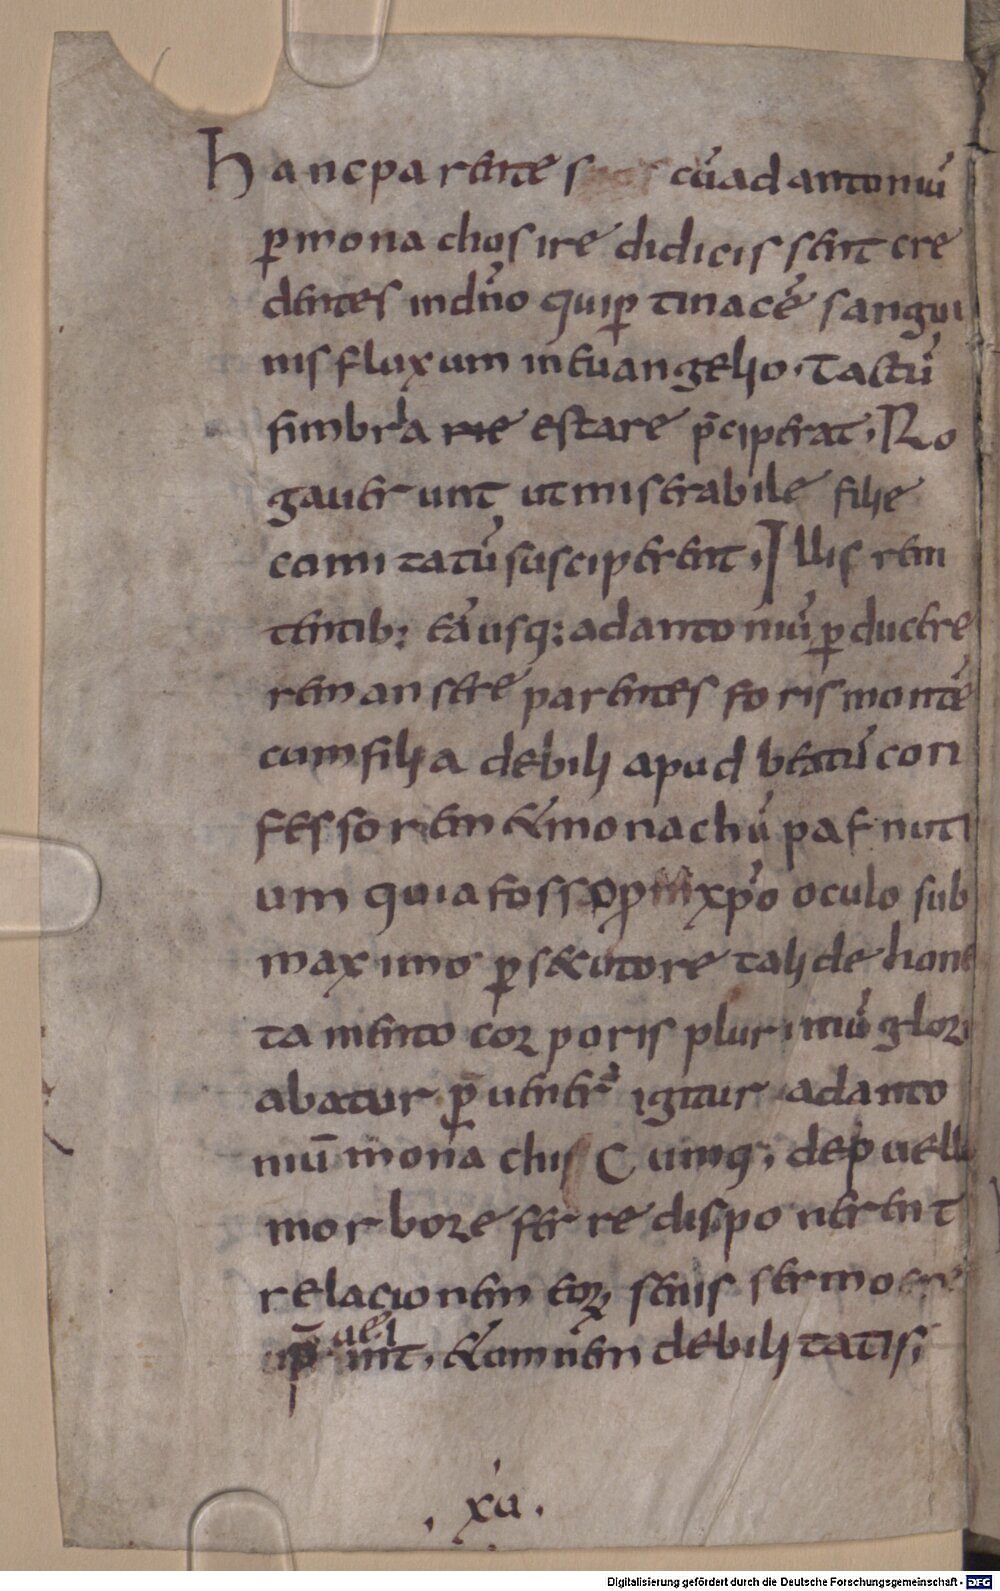 Hanc parentes cū ad antoniū
ꝑ monachos ire didicissent cre
dentes in dn̄o qui ꝑtinacē sangui
nis fluxum in euangelio. Tactū
fimbria re estare p̄ciperat. Ro
gauerunt ut miserabile filie
comitatū susciperent. Illis ren
tentib; eā usq; ad antoniū ꝑducere
remansere parentes foris montē
cum filia debili apud beatū con
fessorem & monachū pafnuti
um qui a fosso ꝓ xp̄o oculo sub
maximo ꝑsecutore tali dehone
tamento corporis plurimū glori
abatur ꝑuener̄ igitur ad anto
niū monachis Cumq; de puelle
morbo referre disponerent
relacionem eoꝝ senis sermo
p̄ueniNT. & omnem debilitatis;
. xu .
Digitalisierung gefördert durch die Deutsche Forschungsgemeinschaft - DFG